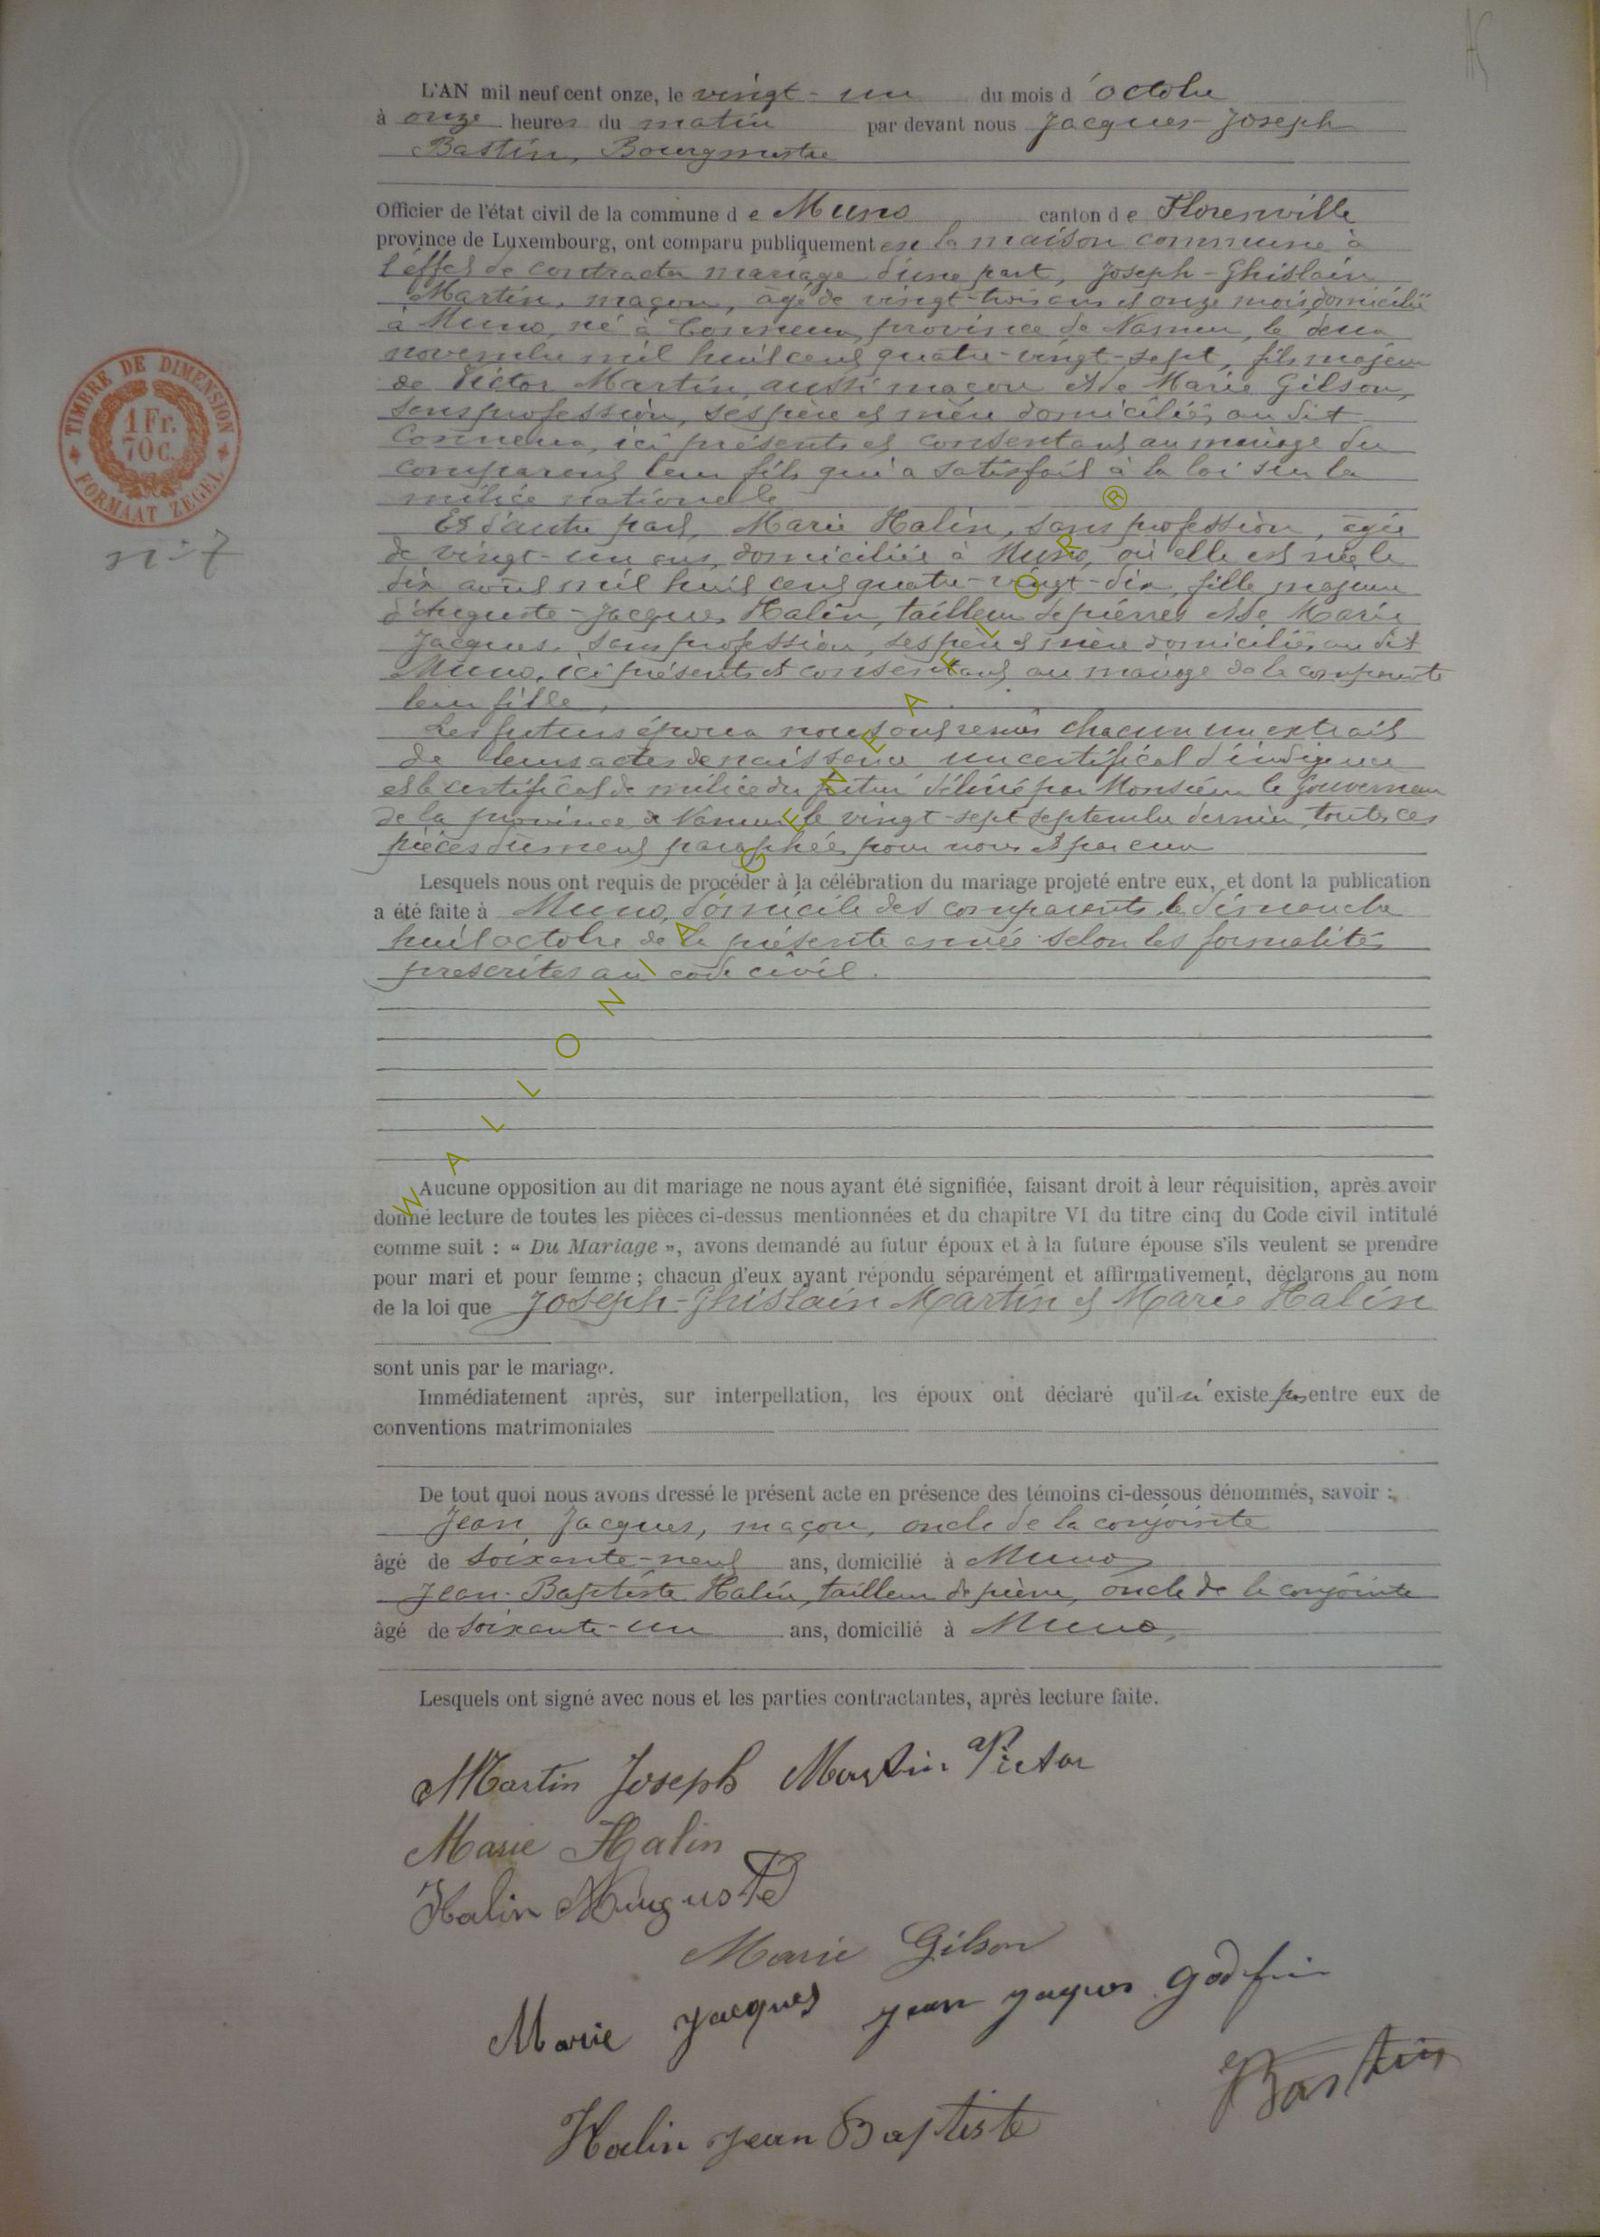 L'AN mil neuf cent onze, le vingt-un du mois d'octobre
à onze heures du matin par devant nous Jacques-Joseph
Bastin, Bourgmestre
Officier de l'état civil de la commune de Muno canton de Florenville
province de Luxembourg, ont comparu publiquement en la maison commune à
l'effet de contracter mariage d'une part, Joseph-Ghislain
Martin, maçon, âgé de vingt-trois ans et onze mois, domicilié
à Muno, né à Conneux, province de Namur, le deux
novembre mil huit cent quatre-vingt-sept, fils majeur
de Victor Martin, aussi maçon et de Marie Gilson,
sans profession, ses père et mère domiciliés au dit
Conneux, ici présents et consentant au mariage du
comparant leur fils qui a satisfait à la loi sur la
milice nationale
TIMBRE DE DIMENSION
1 Fr.
70 c.
FORMAAT ZEGEL
n° 7
Et d'autre part, Marie Halin, sans profession, âgée
de vingt-un ans, domiciliée à Muno, où elle est née le
dix août mil huit cent quatre-vingt-dix, fille majeure
d'Auguste-Jacques Halin, tailleur de pierres et de Marie
Jacques, sans profession, ses père et mère domiciliés au dit
Muno, ici présents et consentant au mariage de la comparante
leur fille,
Les futurs époux nous ont remis chacun un extrait
de leurs actes de naissance un certificat d'indigence
et le certificat de milice du futur délivré par Monsieur le Gouverneur
de la province de Namur le vingt-sept septembre dernier, toutes ces
pièces dûment paraphées pour nous et par eux
Lesquels nous ont requis de procéder à la célébration du mariage projeté entre eux, et dont la publication
a été faite à Muno, domicile des comparants, le dimanche
huit octobre de la présente année selon les formalités
prescrites au code civil.
Aucune opposition au dit mariage ne nous ayant été signifiée, faisant droit à leur réquisition, après avoir
donné lecture de toutes les pièces ci-dessus mentionnées et du chapitre VI du titre cinq du Code civil intitulé
comme suit : « Du Mariage », avons demandé au futur époux et à la future épouse s'ils veulent se prendre
pour mari et pour femme ; chacun d'eux ayant répondu séparément et affirmativement, déclarons au nom
de la loi que Joseph-Ghislain Martin et Marie Halin
sont unis par le mariage.
Immédiatement après, sur interpellation, les époux ont déclaré qu'il n'existe pas entre eux de
conventions matrimoniales
De tout quoi nous avons dressé le présent acte en présence des témoins ci-dessous dénommés, savoir :
Jean Jacques, maçon, oncle de la conjointe
âgé de soixante-neuf ans, domicilié à Muno
Jean-Baptiste Halin, tailleur de pierre, oncle de la conjointe
âgé de soixante-un ans, domicilié à Muno,
Lesquels ont signé avec nous et les parties contractantes, après lecture faite.
Martin Joseph Martin Victor
Marie Halin
Halin Auguste
Marie Gilson
Marie Jacques Jean Jaques Godfrin
Bastin
Halin Jean Baptiste
WALLONIA GENEAFLOR ®